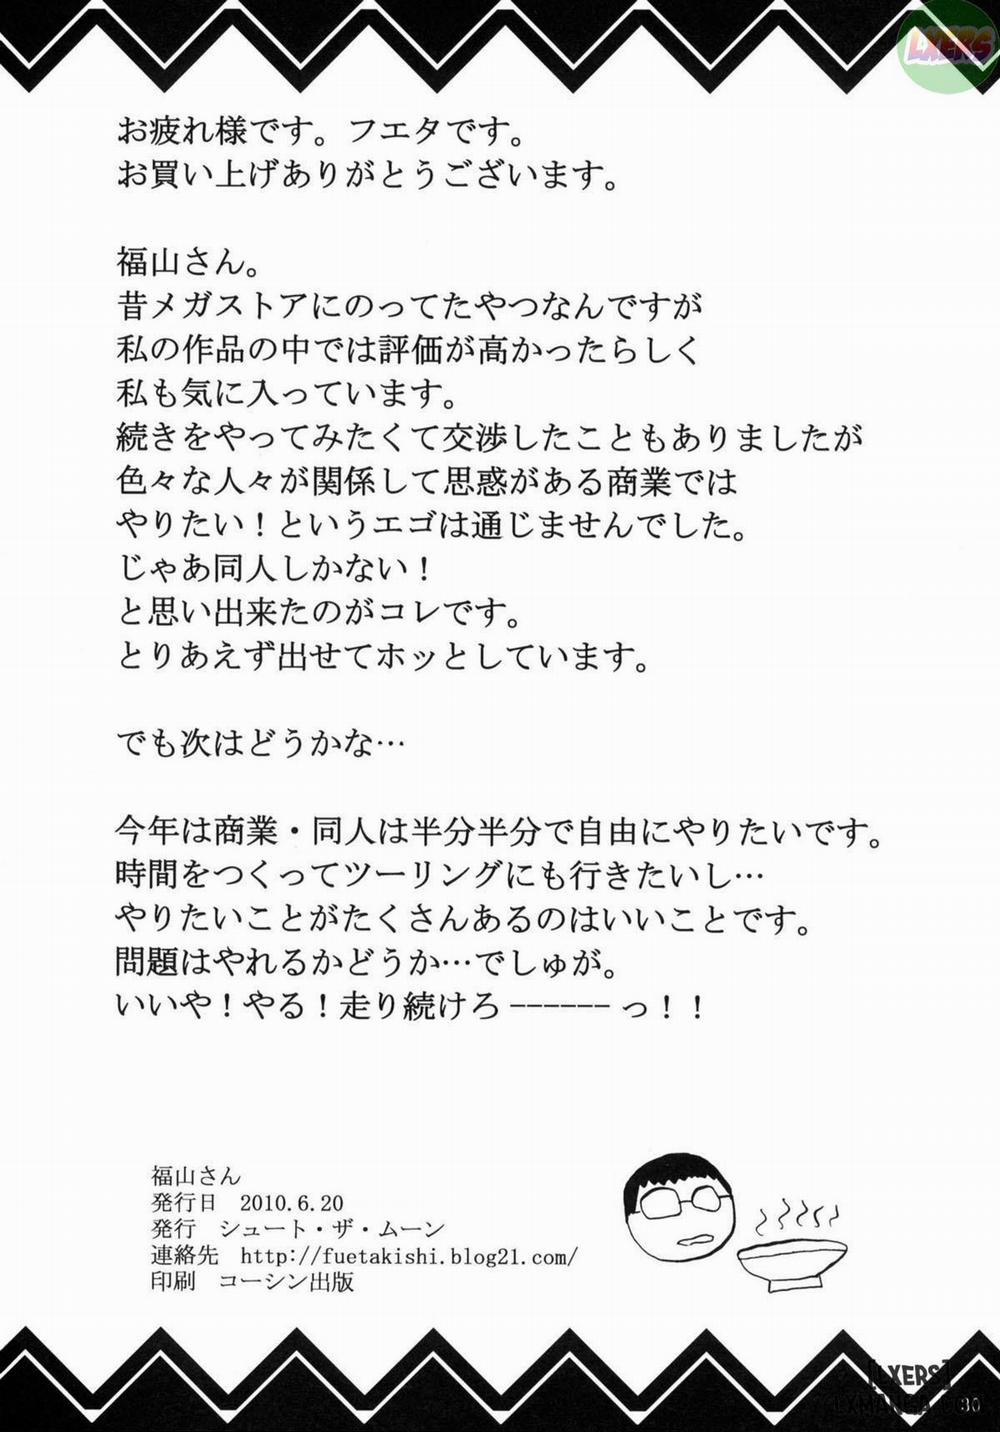 LXERS
お疲れ様です。フエタです。
お買い上げありがとうございます。
福山さん。
昔メガストアにのってたやつなんですが
私の作品の中では評価が高かったらしく
私も気に入っています。
続きをやってみたくて交渉したこともありましたが
色々な人々が関係して思惑がある商業では
やりたい！というエゴは通じませんでした。
じゃあ同人しかない！
と思い出来たのがコレです。
とりあえず出せてホッとしています。
でも次はどうかな…
今年は商業・同人は半分半分で自由にやりたいです。
時間をつくってツーリングにも行きたいし…
やりたいことがたくさんあるのはいいことです。
問題はやれるかどうか…でしゅが。
いいや！やる！走り続けろ ------ っ！！
福山さん
発行日　2010.6.20
発行　シュート・ザ・ムーン
連絡先　http://fuetakishi.blog21.com/
印刷　コーシン出版
[LXERS]
LXMANGA.COM
30